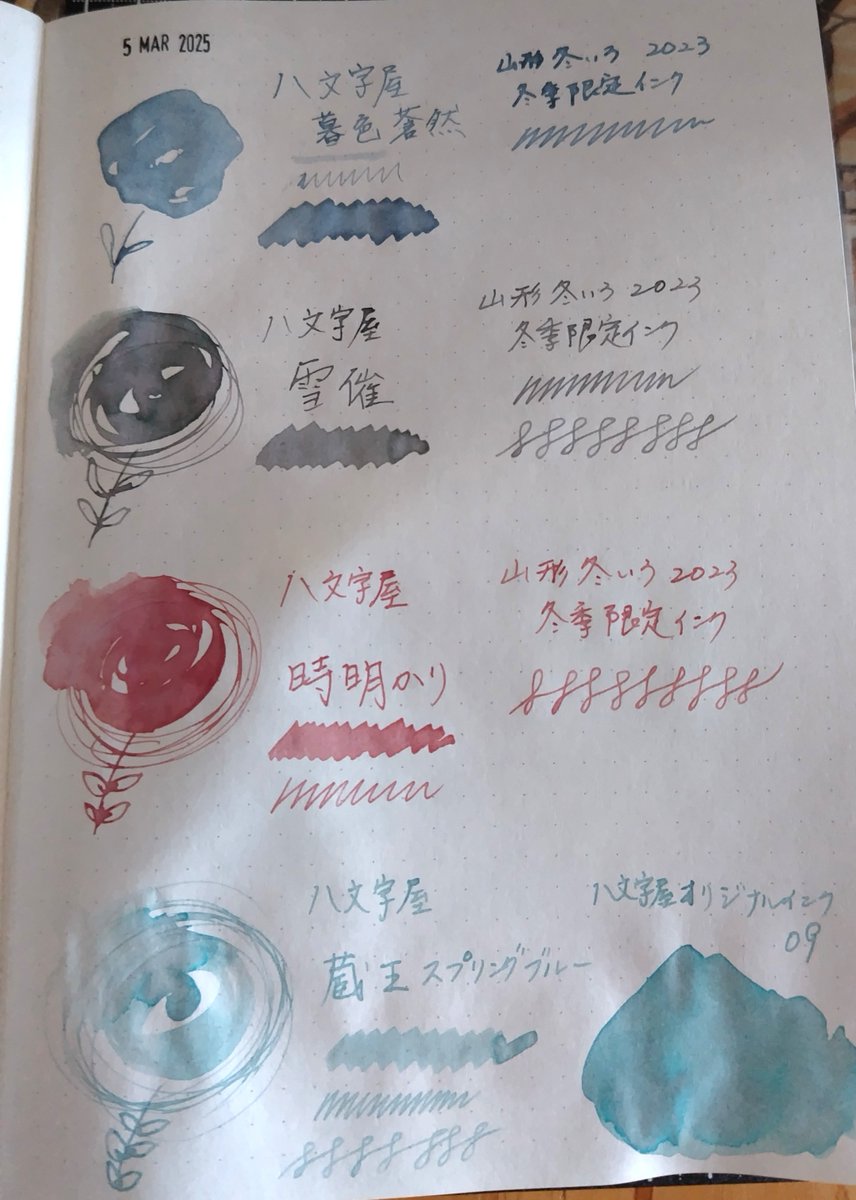 5 MAR 2025
八文字屋
暮色蒼然
山形冬いろ 2023
冬季限定インク
八文字屋
雪催
山形冬いろ 2023
冬季限定インク
八文字屋
時明かり
山形冬いろ 2023
冬季限定インク
八文字屋
蔵王スプリングブルー
八文字屋オリジナルインク
09